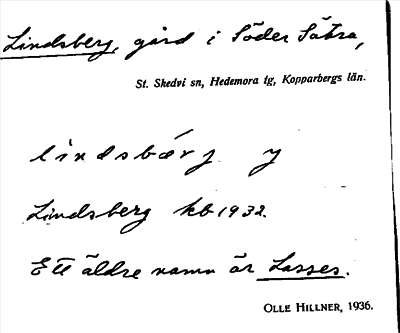 Lindsberg, gård i Söder Sätra,
St. Skedvi sn, Hedemora tg, Kopparbergs län.
lindsbærj y
Lindsberg kb 1932.
Ett äldre namn är Lasses.
OLLE HILLNER, 1936.